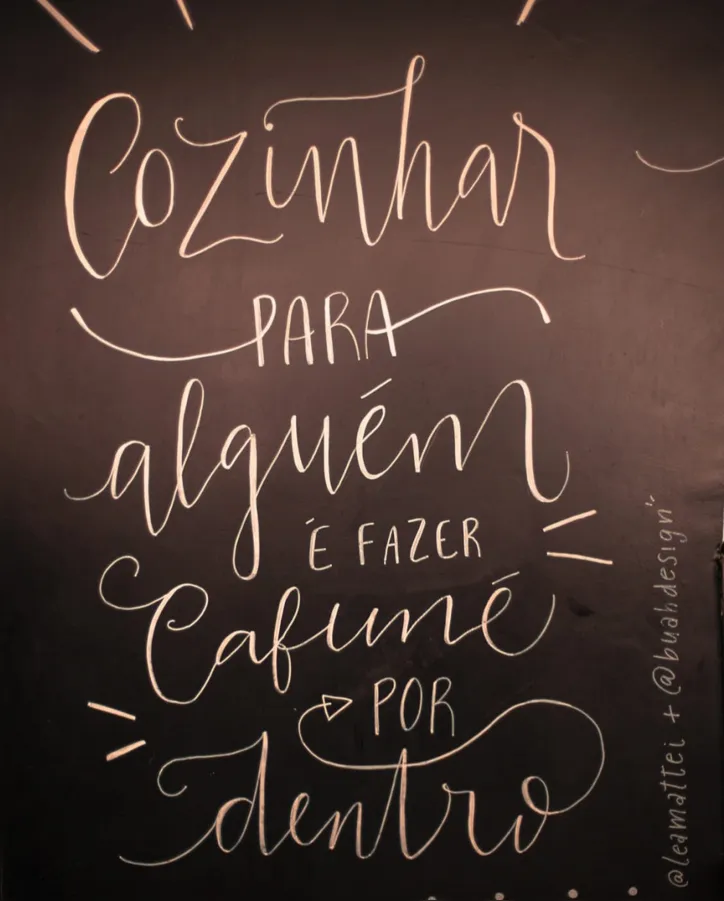 Cozinhar
PARA
alguém
É FAZER
Cafuné
POR
dentro
@leamattei + @buahdesign